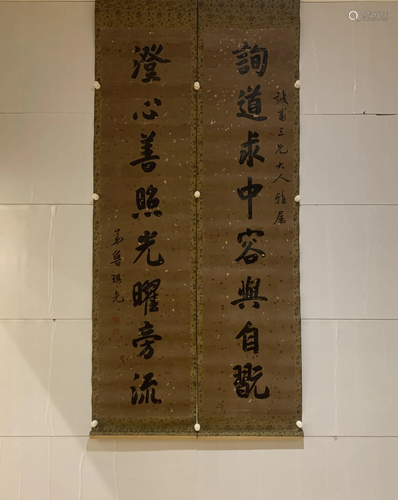 甫三兄大人雅屬
詢道求中容與自翫
澄心善照光曜旁流
弟魯琪光